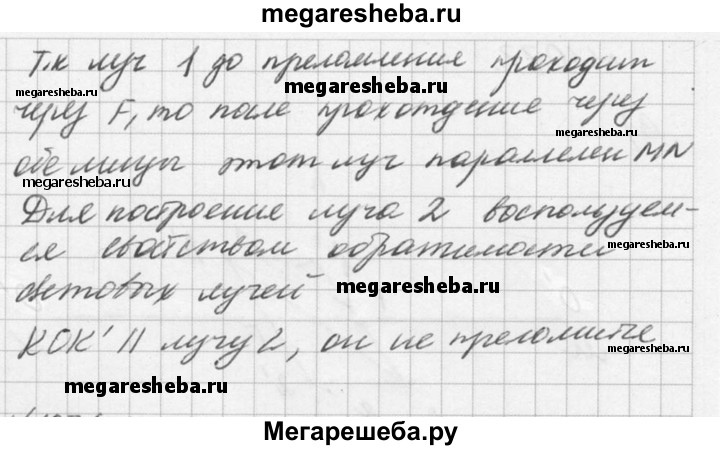 megaresheba.ru
Т.к луч 1 до преломления проходит
megaresheba.ru
через F, то после прохождение через
megaresheba.ru
обе линзы этот луч параллелен MN
megaresheba.ru
megaresheba.ru
Для построение луча 2 воспользуем-
ся свойством обратимости
megaresheba.ru
световых лучей
megaresheba.ru
KOK' || лучу 2, он не преломите
megaresheba.ru
megaresheba.ru
Мегарешеба.ру